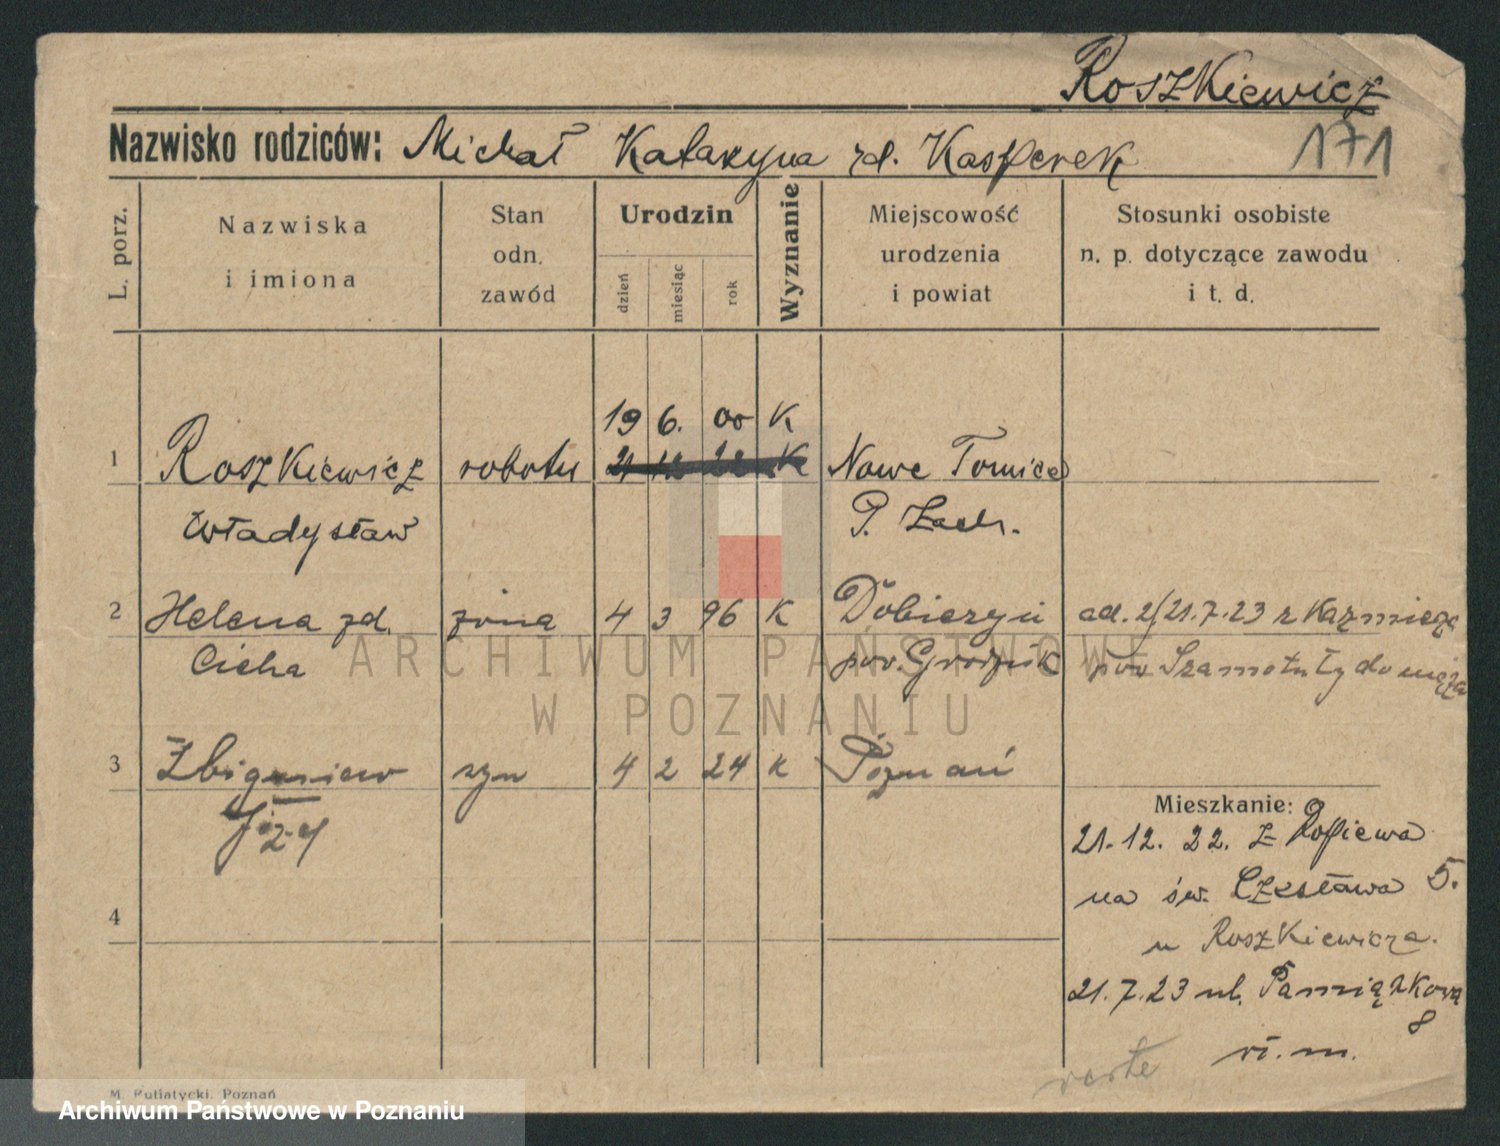 Roszkiewicz
171
Nazwisko rodziców: Michał Katarzyna zd. Kasperek
L. porz.
Nazwiska
i imiona
Stan
odn.
zawód
Urodzin
dzień
miesiąc
rok
Wyznanie
Miejscowość
urodzenia
i powiat
Stosunki osobiste
n. p. dotyczące zawodu
i t. d.
19 6. 00 K
1 Roszkiewicz robotn 21 12 22 K Nowe Tomice
Władysław P. Zach.
2 Helena zd. żona 4 3 96 K Dobieżyn ad. 2/21.7.23 z Kaźmierza
Cicha pow. Grodzisk pow Szamotuły do męża
3 Zbigniew syn 4 2 24 K Poznań
Jerzy
Mieszkanie:
21.12. 22. z
na św. Czesława 5.
u Roszkiewicza.
4
21.7.23 ul. Pamiątkowa
8
verte
M. Putiatycki, Poznań
ARCHIWUM PAŃSTWOWE
W POZNANIU
Archiwum Państwowe w Poznaniu